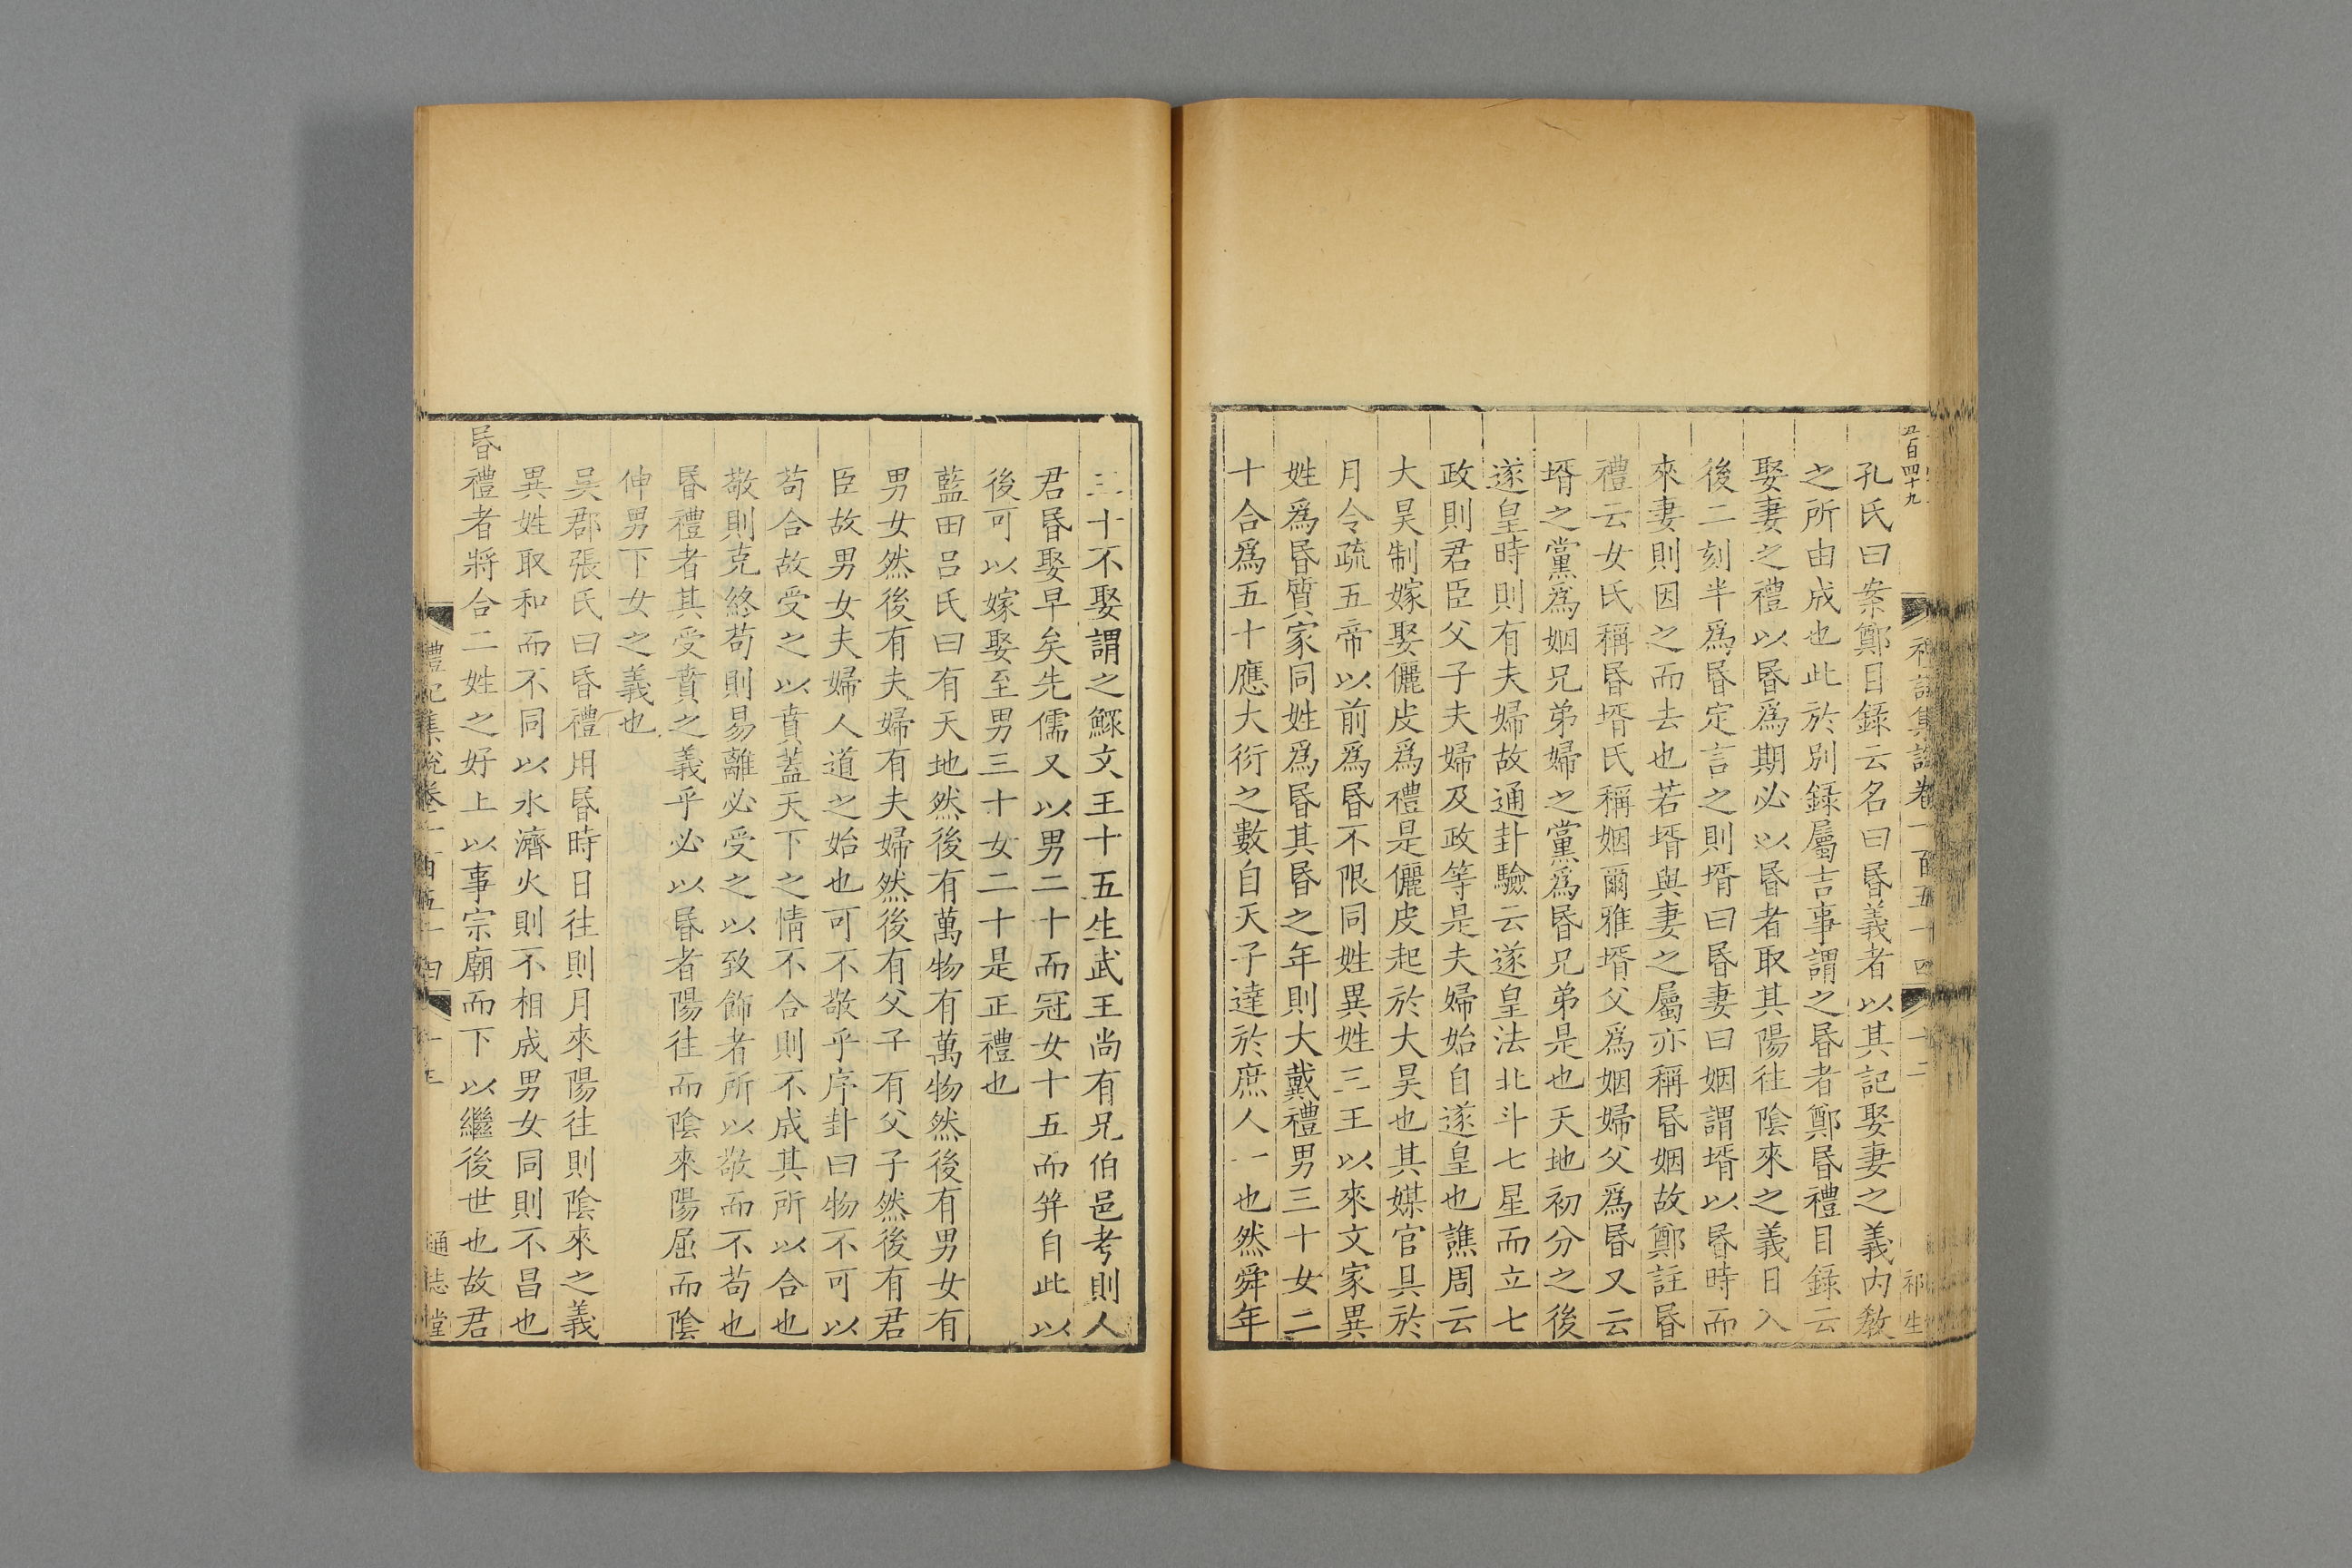 五百四十九
禮記集說卷一百五十四
十二
祁生
孔氏曰案鄭目錄云名曰昬義者以其記娶妻之義內敎
之所由成也此於別錄屬吉事謂之昬者鄭昬禮目錄云
娶妻之禮以昬爲期必以昬者取其陽往陰來之義日入
後二刻半爲昬定言之則壻曰昬妻曰姻謂壻以昬時而
來妻則因之而去也若壻與妻之屬亦稱昬姻故鄭註昬
禮云女氏稱昬壻氏稱姻爾雅壻父爲姻婦父爲昬又云
壻之黨爲姻兄弟婦之黨爲昬兄弟是也天地初分之後
遂皇時則有夫婦故通卦驗云遂皇法北斗七星而立七
政則君臣父子夫婦及政等是夫婦始自遂皇也譙周云
大昊制嫁娶儷皮爲禮是儷皮起於大昊也其媒官具於
月令疏五帝以前爲昬不限同姓異姓三王以來文家異
姓爲昬質家同姓爲昬其昬之年則大戴禮男三十女二
十合爲五十應大衍之數自天子達於庶人一也然舜年
三十不娶謂之鰥文王十五生武王尚有兄伯邑考則人
君昬娶早矣先儒又以男二十而冠女十五而筓自此以
後可以嫁娶至男三十女二十是正禮也
藍田呂氏曰有天地然後有萬物有萬物然後有男女有
男女然後有夫婦有夫婦然後有父子有父子然後有君
臣故男女夫婦人道之始也可不敬乎序卦曰物不可以
苟合故受之以賁蓋天下之情不合則不成其所以合也
敬則克終苟則易離必受之以致飾者所以敬而不苟也
昬禮者其受賁之義乎必以昬者陽往而陰來陽屈而陰
伸男下女之義也
吳郡張氏曰昏禮用昬時日往則月來陽往則陰來之義
異姓取和而不同以水濟火則不相成男女同則不昌也
昬禮者將合二姓之好上以事宗廟而下以繼後世也故君
禮記集說卷一百五十四
十三
通志堂